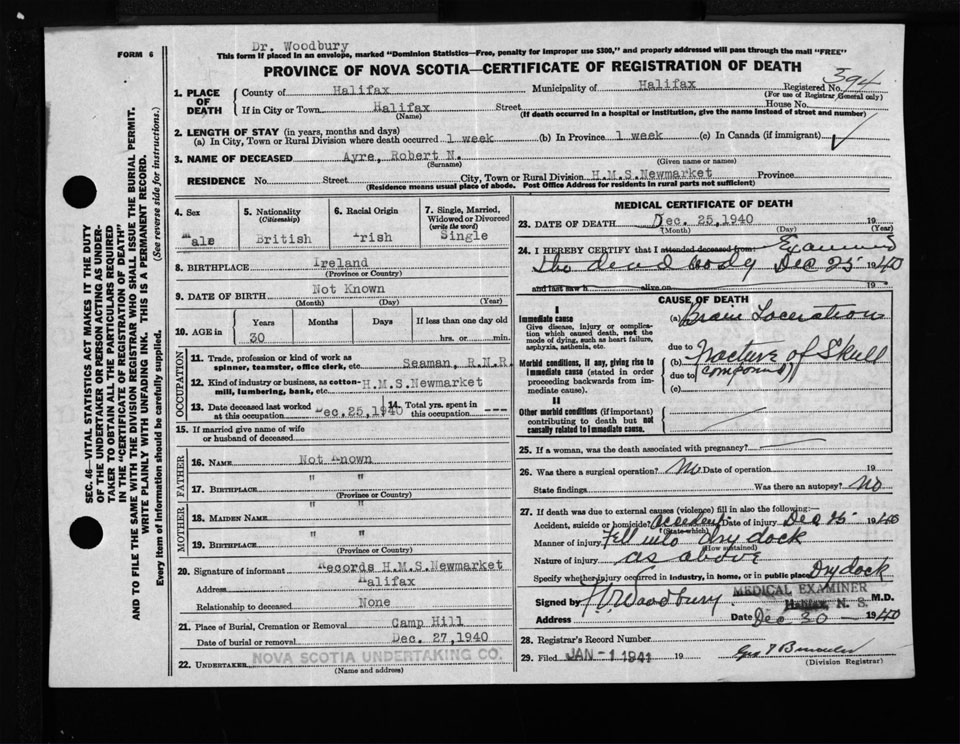 Dr. Woodbury
FORM 6
This form if placed in an envelope, marked "Dominion Statistics—Free, penalty for improper use $300," and properly addressed will pass through the mail "FREE"
PROVINCE OF NOVA SCOTIA—CERTIFICATE OF REGISTRATION OF DEATH
594
1. PLACE OF DEATH County of Halifax Municipality of Halifax Registered No.
(For use of Registrar General only)
If in City or Town Halifax Street House No.
(Name) (If death occurred in a hospital or institution, give the name instead of street and number)
2. LENGTH OF STAY (in years, months and days)
(a) In City, Town or Rural Division where death occurred 1 week (b) In Province 1 week (c) In Canada (if immigrant)
3. NAME OF DECEASED Ayre, Robert N.
(Surname) (Given name or names)
RESIDENCE No. Street City, Town or Rural Division H.M.S.Newmarket Province
(Residence means usual place of abode. Post Office Address for residents in rural parts not sufficient)
4. Sex 5. Nationality (Citizenship) 6. Racial Origin 7. Single, Married, Widowed or Divorced (write the word)
Male British Irish Single
8. BIRTHPLACE Ireland
(Province or Country)
9. DATE OF BIRTH Not Known
(Month) (Day) (Year)
10. AGE in Years Months Days If less than one day old
30 hrs. or min.
OCCUPATION
11. Trade, profession or kind of work as spinner, teamster, office clerk, etc. Seaman, R.N.R.
12. Kind of industry or business, as cotton-mill, lumbering, bank, etc. H.M.S.Newmarket
13. Date deceased last worked at this occupation Dec.25,1940 14. Total yrs. spent in this occupation ---
15. If married give name of wife or husband of deceased
FATHER
16. NAME Not Known
17. BIRTHPLACE " "
(Province or Country)
MOTHER
18. MAIDEN NAME " "
19. BIRTHPLACE " "
(Province or Country)
20. Signature of informant Records H.M.S.Newmarket
Address Halifax
Relationship to deceased None
21. Place of Burial, Cremation or Removal Camp Hill
Date of burial or removal Dec. 27,1940
22. UNDERTAKER NOVA SCOTIA UNDERTAKING CO.
(Name and address)
MEDICAL CERTIFICATE OF DEATH
23. DATE OF DEATH Dec. 25,1940 19
(Month) (Day) (Year)
24. I HEREBY CERTIFY that I attended deceased from: Examined
the dead body Dec 25 1940
and last saw h alive on 19
CAUSE OF DEATH
I
Immediate cause (a) Brain Laceration
Give disease, injury or complication which caused death, not the mode of dying, such as heart failure, asphyxia, asthenia, etc.
due to
Morbid conditions, if any, giving rise to immediate cause (stated in order proceeding backwards from immediate cause).
(b) Fracture of Skull
due to compound
(c)
II
Other morbid conditions (if important) contributing to death but not causally related to immediate cause.
25. If a woman, was the death associated with pregnancy?
26. Was there a surgical operation? No Date of operation 19
State findings Was there an autopsy? No
27. If death was due to external causes (violence) fill in also the following:—
Accident, suicide or homicide? Accident Date of injury Dec 25 1940
(State which)
Manner of injury Fell into dry dock
(How sustained)
Nature of injury as above
Specify whether injury occurred in industry, in home, or in public place Dry dock
Signed by Woodbury MEDICAL EXAMINER Halifax, N. S. M.D.
Address Date Dec 30 - 1940
28. Registrar's Record Number
29. Filed JAN -1 1941 19
(Division Registrar)
SEC. 46—VITAL STATISTICS ACT MAKES IT THE DUTY
OF THE UNDERTAKER OR PERSON ACTING AS UNDER-
TAKER TO OBTAIN ALL THE PARTICULARS REQUIRED
IN THE "CERTIFICATE OF REGISTRATION OF DEATH"
AND TO FILE THE SAME WITH THE DIVISION REGISTRAR WHO SHALL ISSUE THE BURIAL PERMIT.
WRITE PLAINLY WITH UNFADING INK. THIS IS A PERMANENT RECORD.
Every item of information should be carefully supplied. (See reverse side for instructions.)